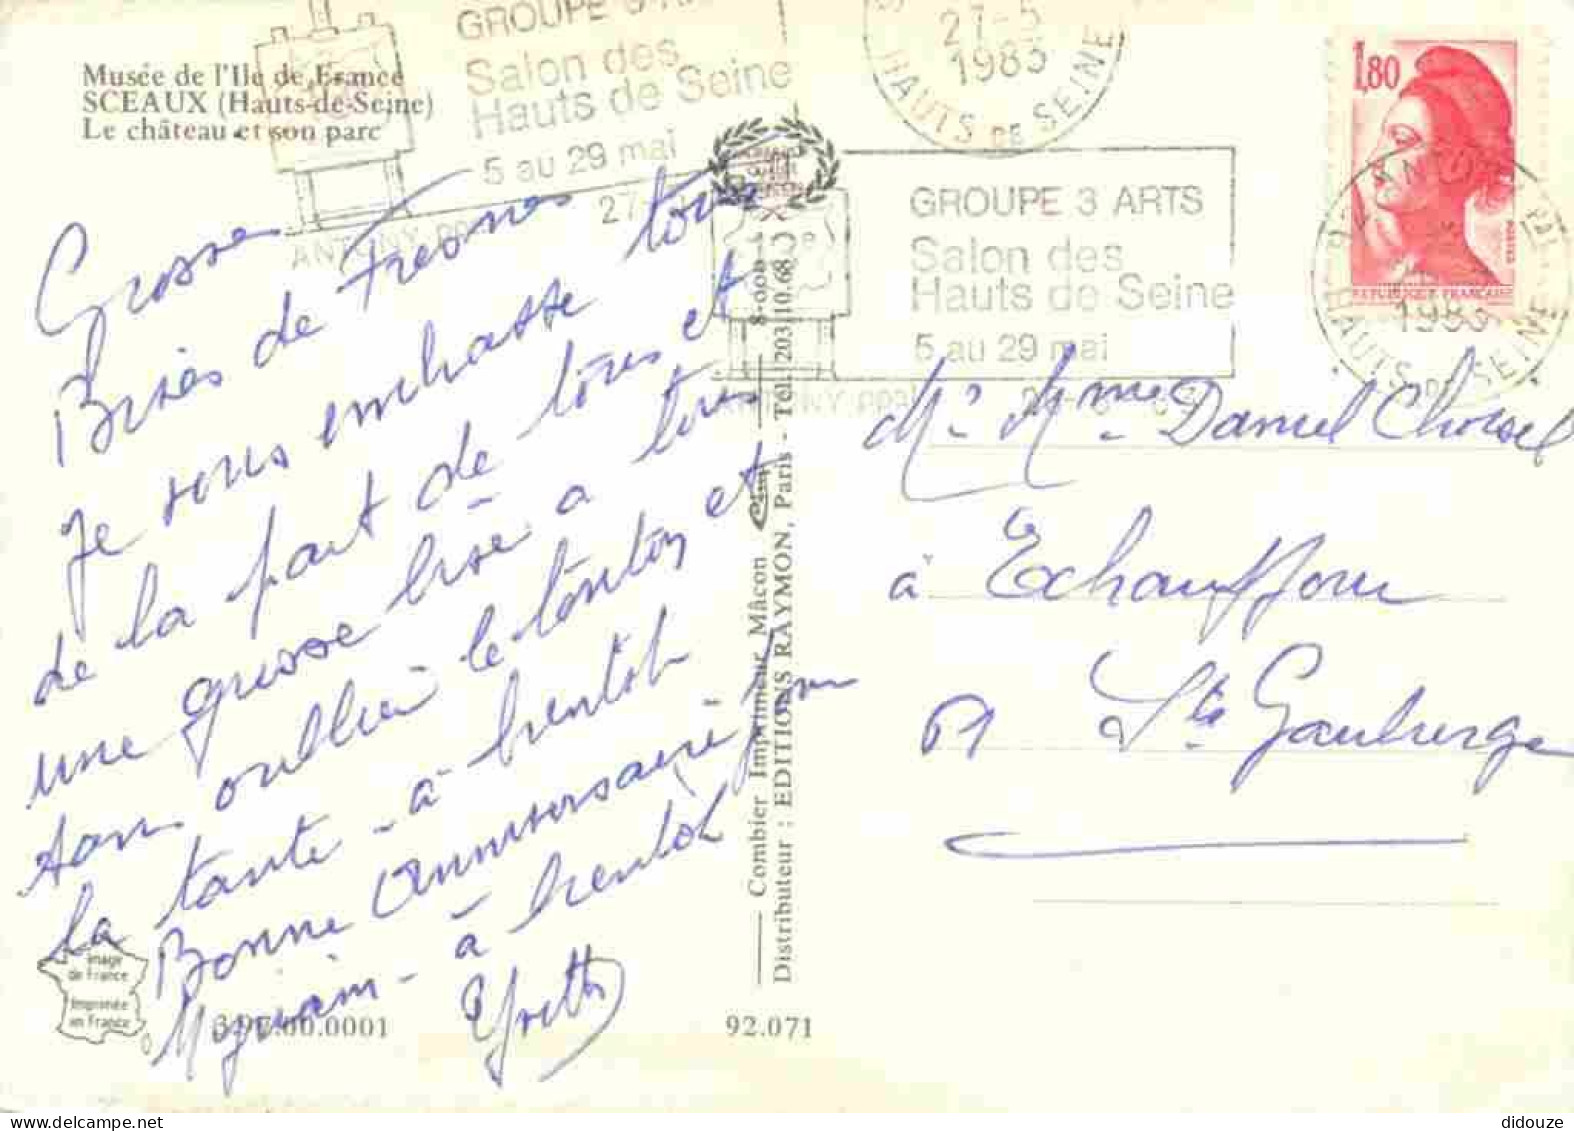 Musée de l'Ile de France
SCEAUX (Hauts-de-Seine)
Le château et son parc
GROUPE 3
Salon des
Hauts de Seine
5 au 29 mai
ANTONY PPAL
27-5
1983
HAUTS DE SEINE
GROUPE 3 ARTS
Salon des
Hauts de Seine
5 au 29 mai
ANTONY PPAL
1,80
REPUBLIQUE FRANÇAISE
POSTES
ANTONY PAL
1983
HAUTS DE SEINE
Grosses
Bises de Fresnes
Je vous embrasse tous
de la part de tous et
une grosse bise a tous
sans oublier le tonton et
la tante - à bientot
Bonne anniversaire
à bientot
Yvette
Mr Mme Daniel Choisel
à Echauffour
Ste Gauburge
Combier Imprimeur Mâcon
Distributeur : EDITIONS RAYMON, Paris - Tél. 203.10.68
image
de France
Imprimée
en France
92.071
didouze